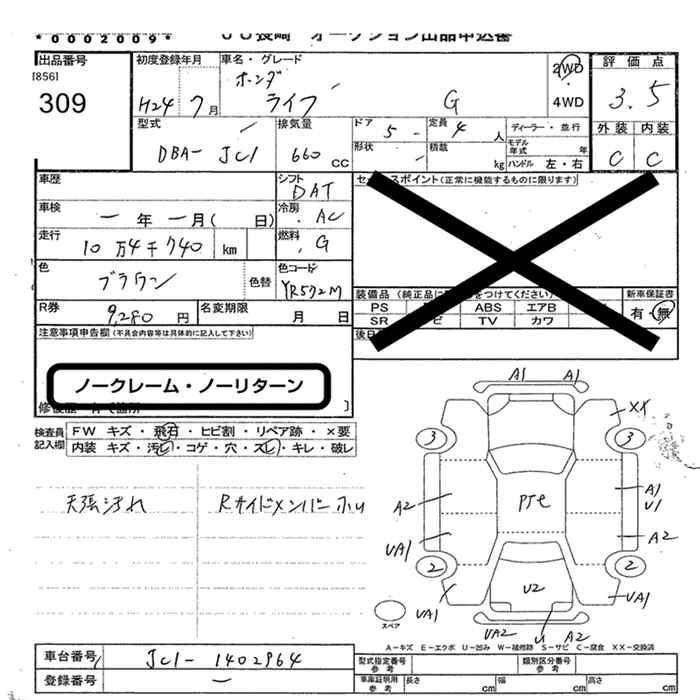 *0002009*
ＪＵ長崎　オークション出品申込書
出品番号
[856]
309
初度登録年月
H24 7月
車名・グレード
ホンダ
ライフ G
2WD
4WD
評価点
3.5
外装 内装
C C
型式
DBA- JC1
排気量
660 CC
ドア
5
定員
4 人
形状
積載
kg
ディーラー・並行
モデル年式 年
ハンドル 左・右
車歴
シフト
DAT
車検
一 年 一月( 日)
冷房
AC
走行
10万4千740 km
燃料
G
色
ブラウン
色替
色コード
YR572M
R券
9,280 円
名変期限
月 日
セールスポイント(正常に機能するものに限ります)
装備品
新車保証書
有・無
PS ABS エアB
SR TV カワ
後日
注意事項申告欄(不具合内容等は具体的に記入して下さい)
ノークレーム・ノーリターン
検査員記入欄
FW キズ・飛石・ヒビ割・リペア跡・×要
内装 キズ・汚レ・コゲ・穴・スレ・キレ・破レ
天張汚れ
Rサイドメンバー ホム
A1 A1
XX
3 3
A2
UA1
X
UA1
PTe
A1
U1
A2
2 2
UA1
U2
UA2 U1 A2
スペア
A-キズ E-エクボ U-凹み W-補修跡 S-サビ C-腐食 XX-交換済
車台番号
JC1-1402964
登録番号
一
型式指定番号
参考
類別区分番号
参考
車庫証明用
参考
長さ cm
幅 cm
高さ cm